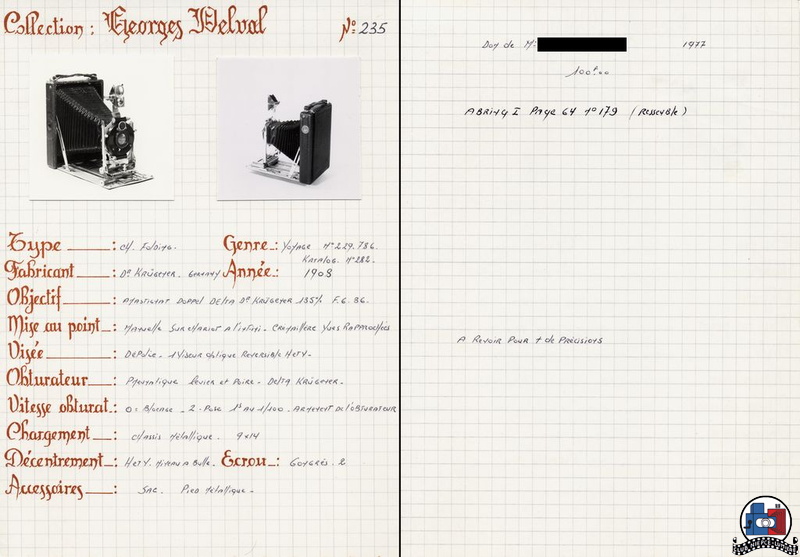 Collection : Georges Delval Nº 235
Type : ch. Folding.
Genre : Voyage Nº 229.786.
Katalog. Nº 282.
Fabricant : Dr Krügener. Germany
Année : 1908
Objectif : Anastigmat Doppel Delta Dr Krügener 135% F.6.36.
Mise au point : Manuelle Sur chariot A l'infini. Crémaillère Vues Rapprochées
Visée : Dépolie. 1 Viseur oblique Reversible
Obturateur : Pneumatique levier et Poire. Delta Krügener.
Vitesse obturat. : 0 = Blocage _ 2. Pose 1s Au 1/100. Armement de l'obturateur
Chargement : chassis métallique. 9x14
Décentrement : Niveau à Bulle.
Ecrou : Congrès. 2
Accessoires : Sac. Pied métallique.
Don de Mr 1977
100f00
ABRING I Page 64 nº 179 (Ressemble)
A Revoir Pour + de Précisions